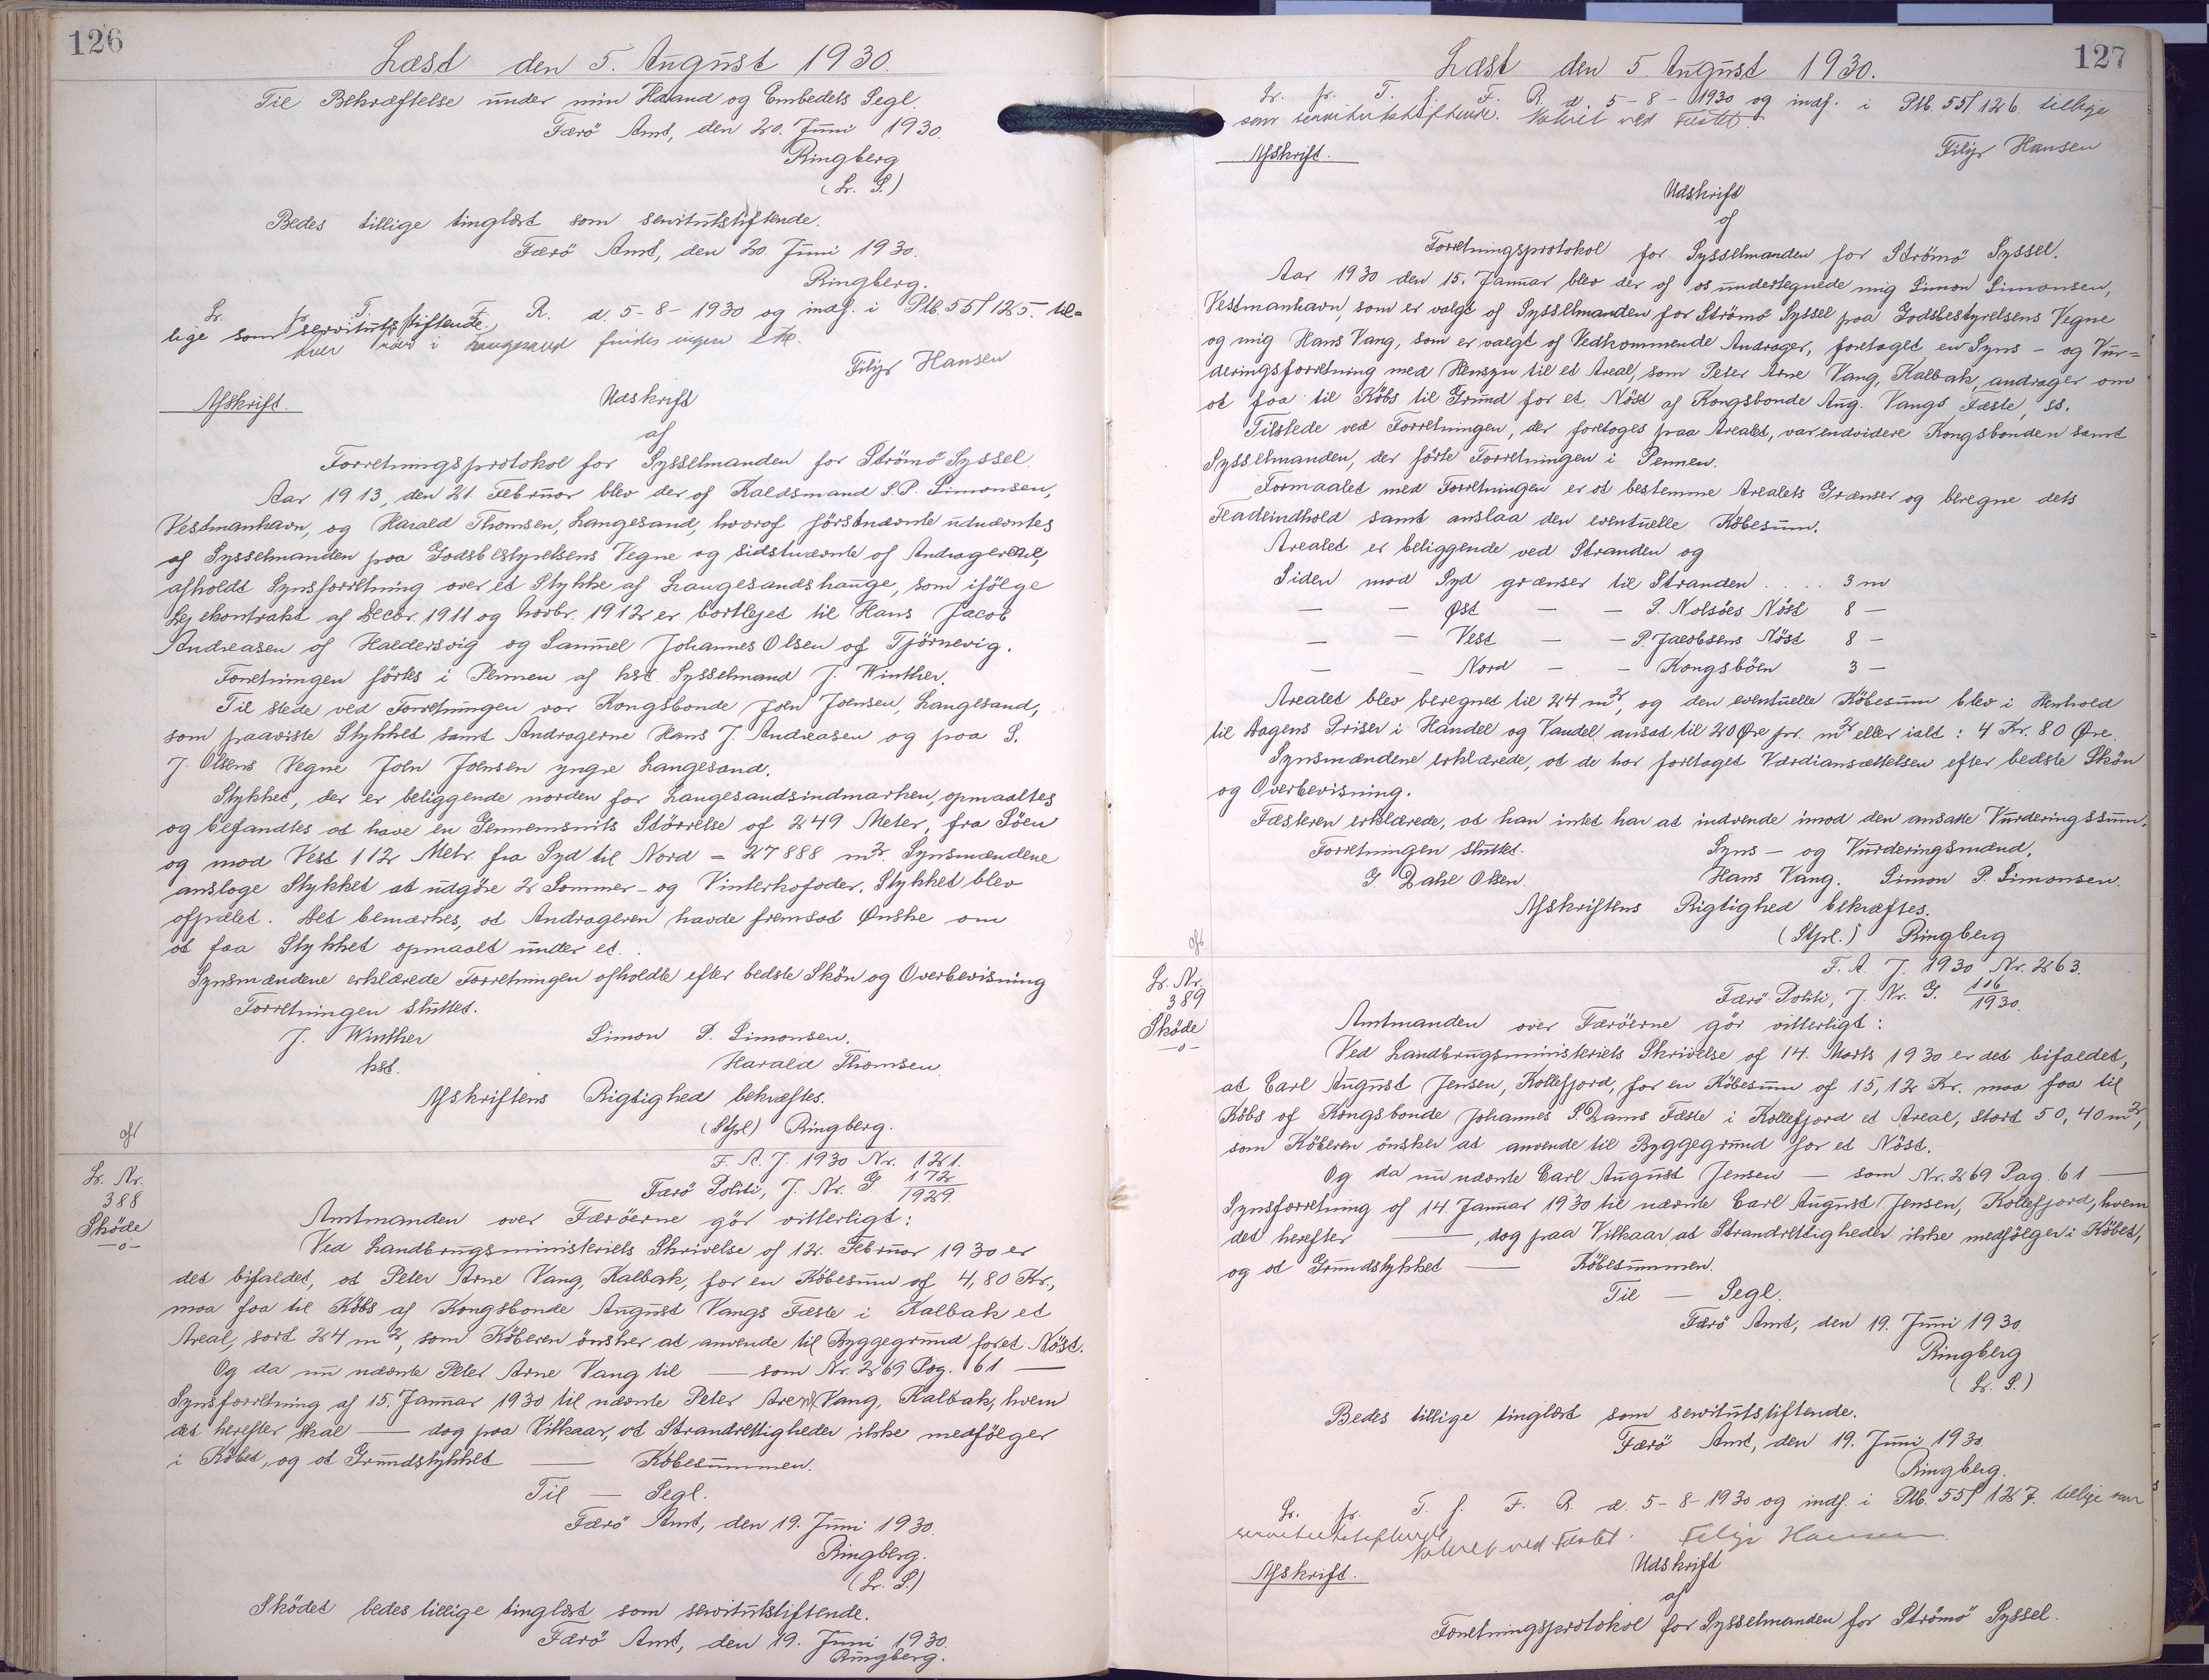 126
Læst den 5. August 1930.
Til Bekræftelse under min Haand og Embedets Segl.
Færö Amt, den 20. Juni 1930.
Ringberg
(L. S.)
Bedes tillige tinglæst som servitutstiftende.
Færö Amt, den 20. Juni 1930.
Ringberg.
L. p. T. f. F. R. d. 5-8-1930 og indf. i Ptb. 55/125. til=
lige som servitutstiftende.
findes ingen
Filip Hansen
Afskrift.
Udskrift
af
Forretningsprotokol for Sysselmanden for Strömö Syssel.
Aar 1913, den 21. Februar blev der af Kaldsmand S. P. Simonsen,
Vestmanhavn, og Harald Thomsen, Langesand, hvoraf förstnævnte udnævntes
af Sysselmanden paa Godsbestyrelsens Vegne og sidstnævnte af Andragerne,
afholdt Synsforretning over et Stykke af Langesandshauge, som ifölge
Lejekontrakt af Decbr. 1911 og Novbr. 1912 er bortlejet til Hans Jacob
Andreasen af Haldersvig og Samuel Johannes Olsen af Tjörnevig.
Forretningen förtes i Pennen af hst. Sysselmand J. Winther.
Til stede ved Forretningen var Kongsbonde Joen Joensen, Langesand,
som paaviste Stykket samt Andragerne Hans J. Andreasen og paa S.
J. Olsens Vegne Joen Joensen yngre Langesand.
Stykket, der er beliggende norden for Langesandsindmarken, opmaaltes
og befandtes at have en Gennemsnits Störrelse af 249 Meter, fra Söen
og mod Vest 112 Metr. fra Syd til Nord = 27888 m2. Synsmændene
ansloge Stykket at udgöre 2 Sommer- og Vinterhofoder. Stykket blev
afpælet. Det bemærkes, at Andrageren havde fremsat Ønske om
at faa Stykket opmaalt under et.
Synsmændene erklærede Forretningen afholdte efter bedste Skön og Overbevisning
Forretningen sluttet.
J. Winther Simon P. Simonsen.
hst. Harald Thomsen.
Afskriftens Rigtighed bekræftes.
(Stpl) Ringberg.
L. Nr.
388
Sköde
-o-
F. A. J. 1930 Nr. 121.
Færö Politi, J. Nr. G 172/1929.
Amtmanden over Færöerne gör vitterligt:
Ved Landbrugsministeriets Skrivelse af 12. Februar 1930 er
det bifaldet, at Peter Arne Vang, Kalbak, for en Köbesum af 4,80 Kr.,
maa faa til Köbs af Kongsbonde August Vangs Fæste i Kalbak et
Areal, sort 24 m2, som Köberen önsker at anvende til Byggegrund for et Nöst.
Og da nu nævnte Peter Arne Vang til — som Nr. 269 Pag. 61 —
Synsforretning af 15. Januar 1930 til nævnte Peter Arne Vang, Kalbak, hvem
det herefter skal — dog paa Vilkaar, at Strandrettigheder ikke medfölger
i Köbet, og at Grundstykket — Köbesummen.
Til — Segl.
Færö Amt, den 19. Juni 1930.
Ringberg.
(L. S.)
Sködet bedes tillige tinglæst som servitutstiftende.
Færö Amt, den 19. Juni 1930.
Ringberg.
127
Læst den 5. August 1930.
L. p. T. f. F. R. d. 5-8-1930 og indf. i Ptb. 55/126 tillige
som servitutstiftende. Noteret ved Fæstet.
Filip Hansen
Afskrift.
Udskrift
af
Forretningsprotokol for Sysselmanden for Strömö Syssel.
Aar 1930 den 15. Januar blev der af os undertegnede mig Simon Simonsen,
Vestmanhavn, som er valgt af Sysselmanden for Strömö Syssel paa Godsbestyrelsens Vegne
og mig Hans Vang, som er valgt af Vedkommende Andrager, foretaget en Syns- og Vur=
deringsforretning med Hensyn til et Areal, som Peter Arne Vang, Kalbak, andrager om
at faa til Köbs til Grund for et Nöst af Kongsbonde Aug. Vangs Fæste, ss.
Tilstede ved Forretningen, der foretoges paa Arealet, var endvidere Kongsbonden samt
Sysselmanden, der förte Forretningen i Pennen.
Formaalet med Forretningen er at bestemme Arealets Grænser og beregne dets
Fladeindhold samt anslaa den eventuelle Köbesum.
Arealet er beliggende ved Stranden og
Siden mod Syd grænser til Stranden . . . . 3 m
— — Øst — — P. Nolsöes Nöst 8 —
— — Vest — — P. Jacobsens Nöst 8 —
— — Nord — — Kongsböen 3 —
Arealet blev beregnet til 24 m2, og den eventuelle Köbesum blev i Henhold
til Dagens Priser i Handel og Vandel ansat til 20 Øre pr. m2 eller ialt: 4 Kr. 80 Øre.
Synsmændene erklærede, at de har foretaget Værdiansættelsen efter bedste Skön
og Overbevisning.
Fæsteren erklærede, at han intet har at indvende imod den ansatte Vurderingssum.
Forretningen sluttet. Syns- og Vurderingsmænd,
G. Dahl Olsen. Hans Vang. Simon P. Simonsen.
Afskriftens Rigtighed bekræftes.
(Stpl.) Ringberg
L. Nr.
389
Sköde
-o-
F. A. J. 1930 Nr. 263.
Færö Politi, J. Nr. G. 116/1930.
Amtmanden over Færöerne gör vitterligt:
Ved Landbrugsministeriets Skrivelse af 14. Marts 1930 er det bifaldet,
at Carl August Jensen, Kollefjord, for en Köbesum af 15,12 Kr. maa faa til
Köbs af Kongsbonde Johannes P. Dams Fæste i Kollefjord et Areal, stort 50,40 m2,
som Köberen önsker at anvende til Byggegrund for et Nöst.
Og da nu nævnte Carl August Jensen — som Nr. 269 Pag. 61 —
Synsforretning af 14. Januar 1930 til nævnte Carl August Jensen, Kollefjord, hvem
det herefter —, dog paa Vilkaar at Strandrettigheder ikke medfölger i Köbet,
og at Grundstykket — Köbesummen.
Til — Segl.
Færö Amt, den 19. Juni 1930.
Ringberg
(L. S.)
Bedes tillige tinglæst som servitutstiftende.
Færö Amt, den 19. Juni 1930.
Ringberg.
L. p. T. f. F. R. d. 5-8-1930 og indf. i Ptb. 55/127. tillige som
servitutstiftende. Noteret ved Fæstet. Filip Hansen
Afskrift.
Udskrift
af
Forretningsprotokol for Sysselmanden for Strömö Syssel.